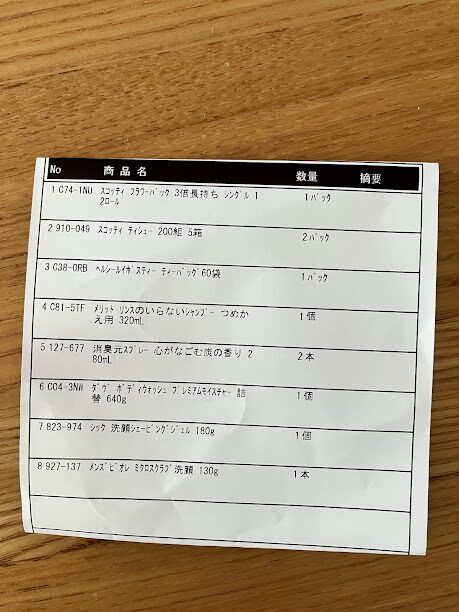 No 商品名 数量 摘要
1 C74-1NU ｽｺｯﾃｨ ﾌﾗﾜｰﾊﾟｯｸ 3倍長持ち ｼﾝｸﾞﾙ 1 1ﾊﾟｯｸ
2ﾛｰﾙ
2 910-049 ｽｺｯﾃｨ ﾃｨｼｭｰ 200組 5箱 2ﾊﾟｯｸ
3 C38-0RB ﾍﾙｼｰﾙｲﾎﾞｽﾃｨｰ ﾃｨｰﾊﾞｯｸﾞ60袋 1ﾊﾟｯｸ
4 C81-5TF ﾒﾘｯﾄ ﾘﾝｽのいらないｼｬﾝﾌﾟｰ つめか 1個
え用 320mL
5 127-677 消臭元ｽﾌﾟﾚｰ 心がなごむ炭の香り 2 2本
80mL
6 C04-3NW ﾀﾞｳﾞ ﾎﾞﾃﾞｨｳｫｯｼｭ ﾌﾟﾚﾐｱﾑﾓｲｽﾁｬｰ 詰 1個
替 640g
7 823-974 ｼｯｸ 洗顔ｼｪｰﾋﾞﾝｸﾞｼﾞｪﾙ 180g 1個
8 927-137 ﾒﾝｽﾞﾋﾞｵﾚ ﾐｸﾛｽｸﾗﾌﾞ洗顔 130g 1本